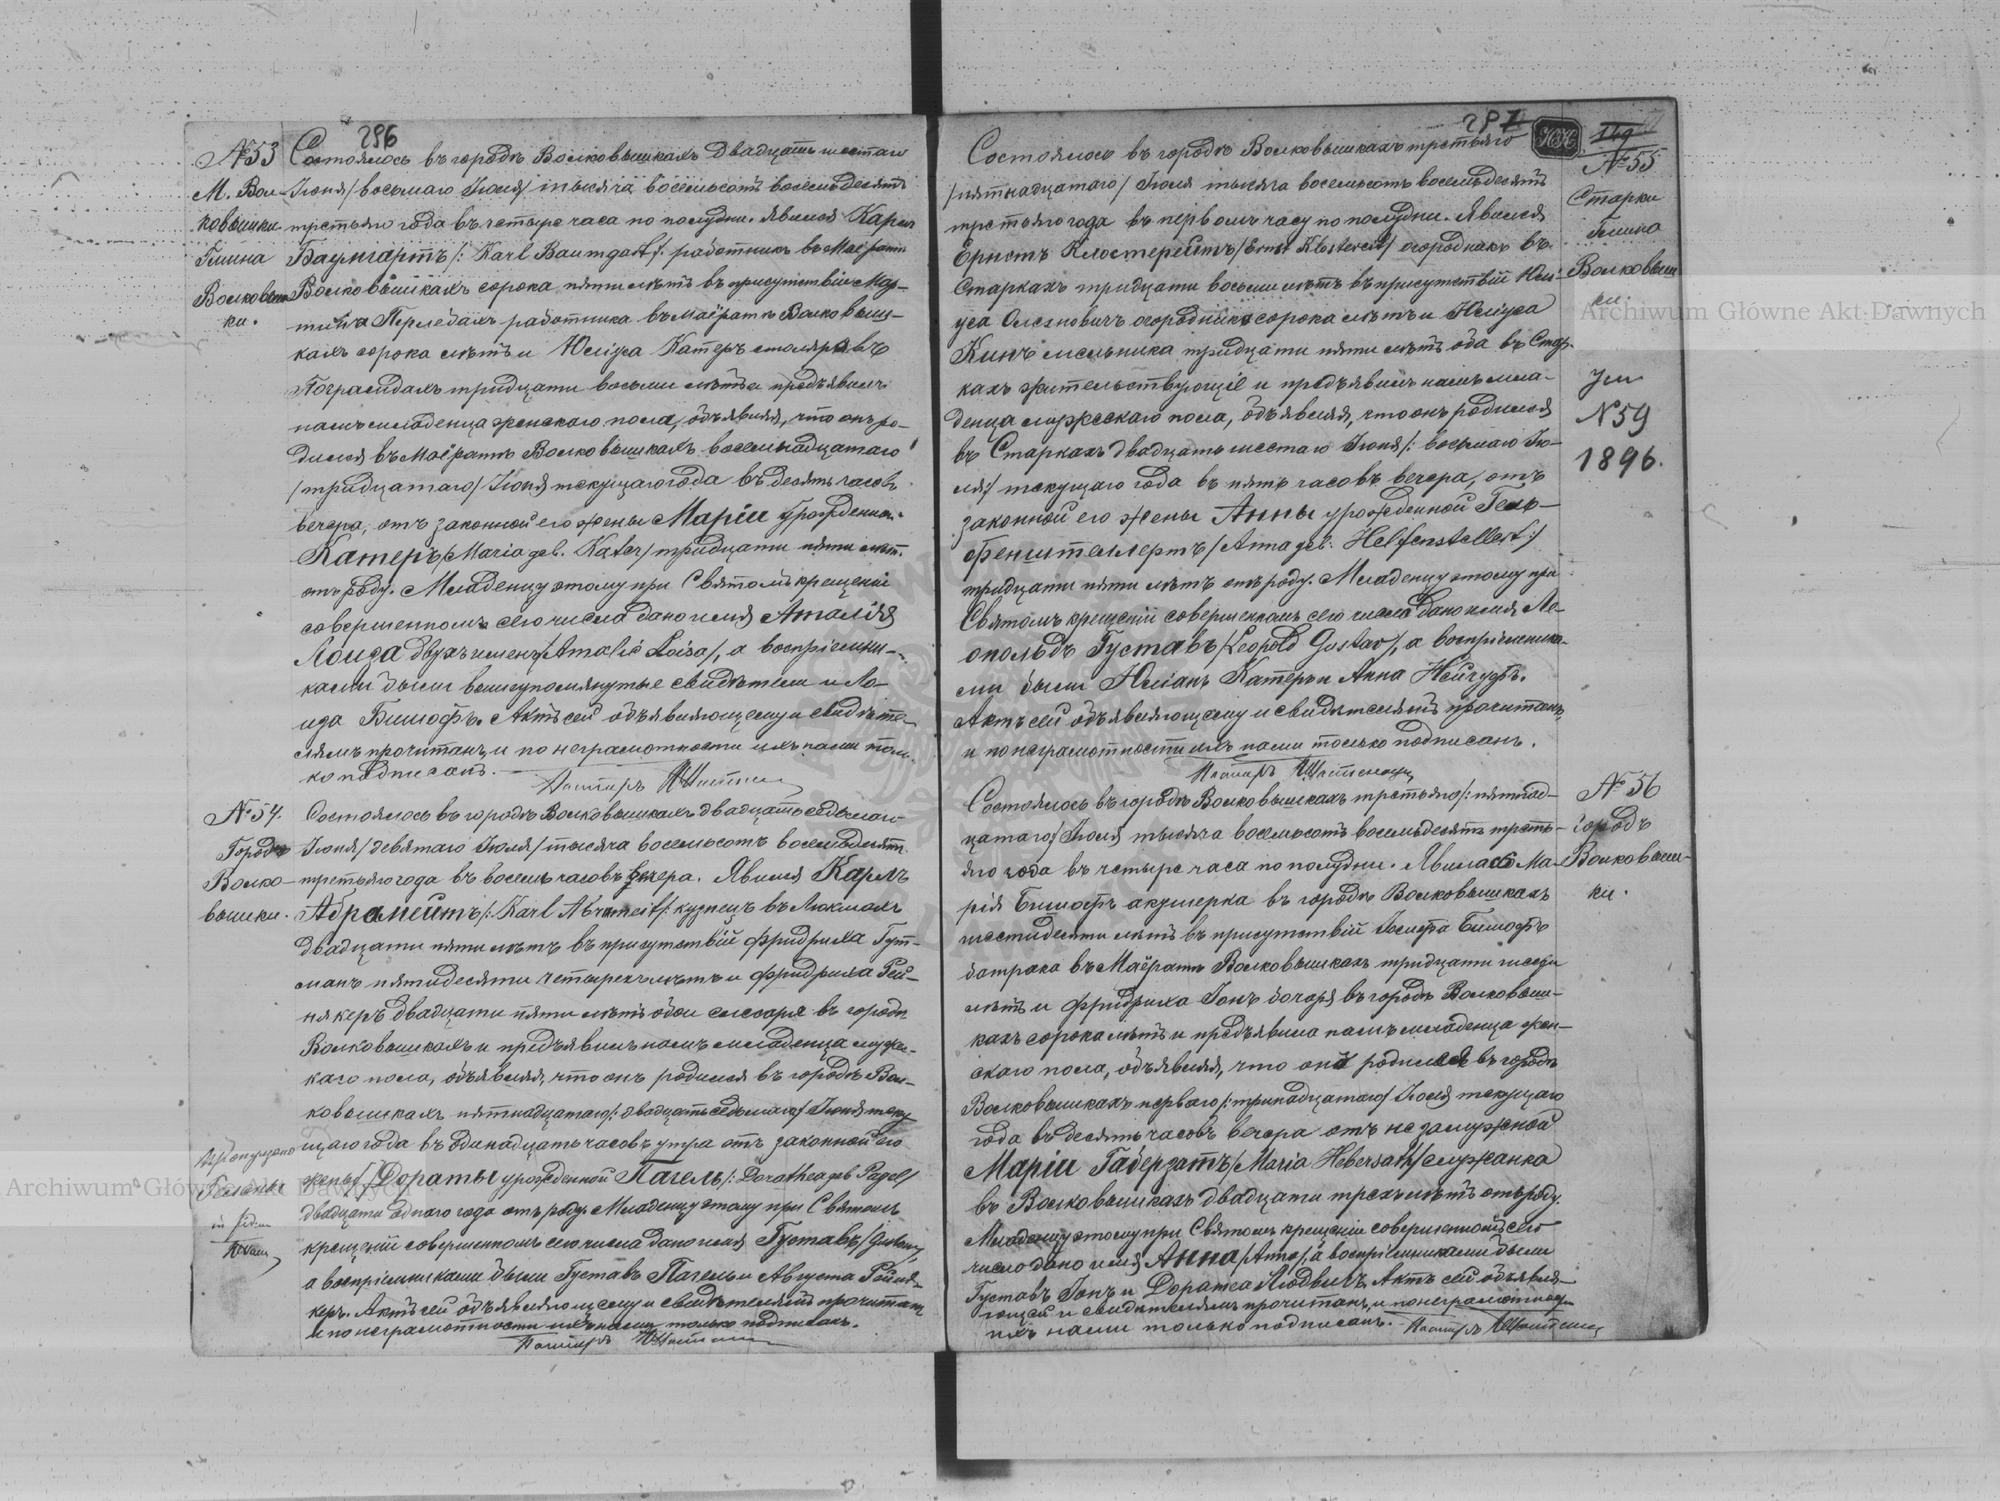 296
№53
М. Вол-
ковышки
Гмина
Волковыш
ки.
Состоялось въ городѣ Волковышкахъ двадцать шестаго
Іюня /восьмаго Іюля/ тысяча восемьсотъ восемьдесятъ
третьяго года въ четыре часа по полудни. Явился Карлъ
Баумгартъ /: Karl Baumgart /: работникъ въ Маіоратѣ
Волковышкахъ сорока пяти лѣтъ въ присутствіи Мар-
тина Перлебахъ работника въ маіоратѣ Волковыш-
кахъ сорока лѣтъ и Юліуса Катеръ столяра въ
тридцати восьми лѣтъ и предъявилъ
намъ младенца женскаго пола, объявляя, что онъ ро-
дился въ Маіоратѣ Волковышкахъ восемнадцатаго
/тридцатаго/ Іюня текущаго года въ десять часовъ
вечера, отъ законной его жены Маріи урожденной
Катеръ /Maria geb. Kater/ тридцати пяти лѣтъ
отъ роду. Младенцу этому при Святомъ крещеніи
совершенномъ сего числа дано имя Амалія
Лоиза двухъ именъ /Amalie Loisa/, а воспріемни-
ками были вышеупомянутые свидѣтели и Ло-
иза Бишофъ. Актъ сей объявляющему и свидѣте-
лямъ прочитанъ, и по неграмотности ихъ нами толь-
ко подписанъ.
Пасторъ
№54.
Городъ
Волко-
вышки.
Состоялось въ городѣ Волковышкахъ двадцать седьмаго
Іюня /девятаго Іюля/ тысяча восемьсотъ восемьдесятъ
третьяго года въ восемь часовъ вечера. Явился Карлъ
Абрамейтъ /: Karl Abrameit /: кузнецъ въ
двадцати пяти лѣтъ въ присутствіи Фридриха Гут-
манъ пятидесяти четырехъ лѣтъ и Фридриха Рей-
някеръ двадцати пяти лѣтъ обои слесаря въ городѣ
Волковышкахъ и предъявилъ намъ младенца мужес-
каго пола, объявляя, что онъ родился въ городѣ Вол-
ковышкахъ пятнадцатаго /: двадцать седьмаго/ Іюня теку
щаго года въ одинадцать часовъ утра отъ законной его
жены Дораты урожденной Пагель /: Dorothea geb Pagel/
двадцати однаго года отъ роду. Младенцу этому при Святомъ
крещеніи совершенномъ сего числа дано имя Густавъ /Gustav/,
а воспріемниками были Густавъ Пагель и Августа Рейня-
керъ. Актъ сей объявляющему и свидѣтелямъ прочитанъ
и по неграмотности ихъ нами только подписанъ.
Пасторъ
297
149
№55
Старки
Гмина
Волковыш
ки.
Ум
№59
1896.
Состоялось въ городѣ Волковышкахъ третьяго
/пятнадцатаго/ Іюля тысяча восемьсотъ восемьдесятъ
третьяго года въ первомъ часу по полудни. Явился
Ернстъ Клостерейтъ /Ernst Klostereit/ огородникъ въ
Старкахъ тридцати восьми лѣтъ въ присутствіи Юлі-
уса Олехновичъ огородника сорока лѣтъ и Юліуса
Кинъ мельника тридцати пяти лѣтъ оба въ Стар-
кахъ жительствующіе и предъявилъ намъ мла-
денца мужескаго пола, объявляя, что онъ родился
въ Старкахъ двадцать шестаго Іюня /: восьмаго Ію-
ля/ текущаго года въ пять часовъ вечера, отъ
законной его жены Анны урожденной Гель-
фенштеллертъ /Anna geb: Helfenstellert:/
тридцати пяти лѣтъ отъ роду. Младенцу этому при
Святомъ крещеніи совершенномъ сего числа дано имя Ле-
опольдъ Густавъ /Leopold Gustav/, а воспріемника-
ми были Юліанъ Катеръ и Анна
Актъ сей объявляющему и свидѣтелямъ прочитанъ,
и по неграмотности ихъ нами только подписанъ.
Пасторъ
№56
городъ
Волковыш-
ки.
Состоялось въ городѣ Волковышкахъ третьяго /: пятнад-
цатаго/ Іюля тысяча восемьсотъ восемьдесятъ треть-
яго года въ четыре часа по полудни. Явилась Ма-
рія Бишофъ акушерка въ городѣ Волковышкахъ
шестидесяти лѣтъ въ присутствіи Іосифа Бишофъ
батрака въ Маіоратѣ Волковышкахъ тридцати шести
лѣтъ и Фридриха Іонъ бочаря въ городѣ Волковыш-
кахъ сорока лѣтъ и предъявила намъ младенца жен-
скаго пола, объявляя, что онъ родился въ городѣ
Волковышкахъ перваго /: тринадцатаго/ Іюля текущаго
года въ десять часовъ вечера отъ незамужной
Маріи Габерзатъ /Maria Hebersath/ служанка
въ Волковышкахъ двадцати трехъ лѣтъ отъ роду.
Младенцу этому при Святомъ крещеніи совершенномъ сего
число дано имя Анна /Anna/, а воспріемниками были
Густавъ Іонъ и Доратеа Людвигъ. Актъ сей объявля-
ющей и свидѣтелямъ прочитанъ, и по неграмотности
ихъ нами только подписанъ. Пасторъ
Archiwum Główne Akt Dawnych
Archiwum Główne Akt Dawnych